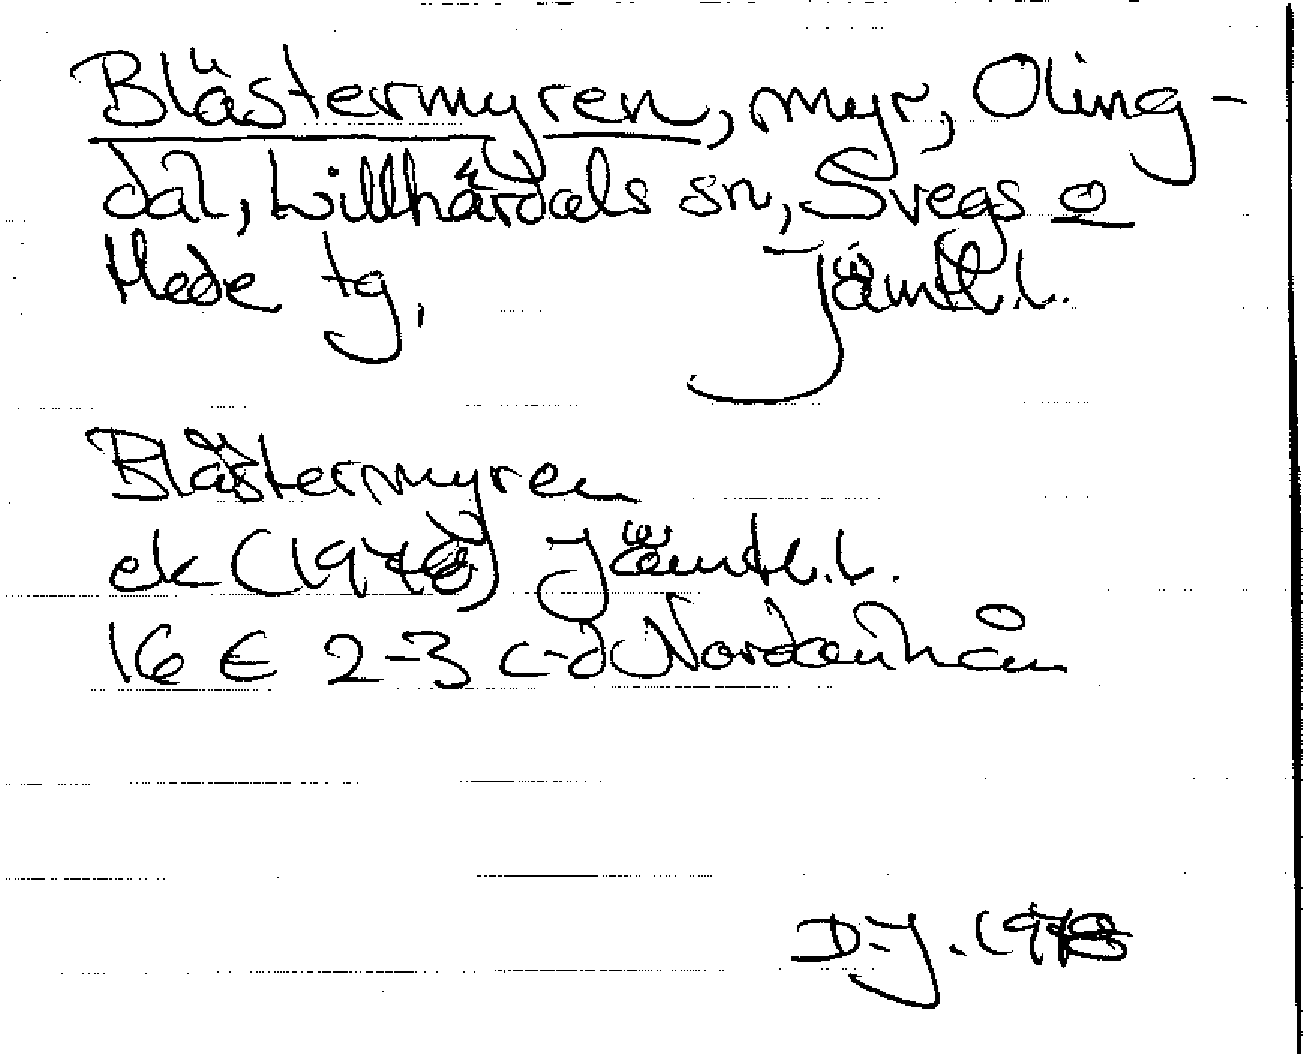 Blästermyren, myr, Oling-
dal, Lillhärdals sn, Svegs o
Hede tg, Jämtl.l.
Blästermyren
ek (1978) Jämtl.l.
16 E 2-3 c-d Nordanhån
D-J. 1978